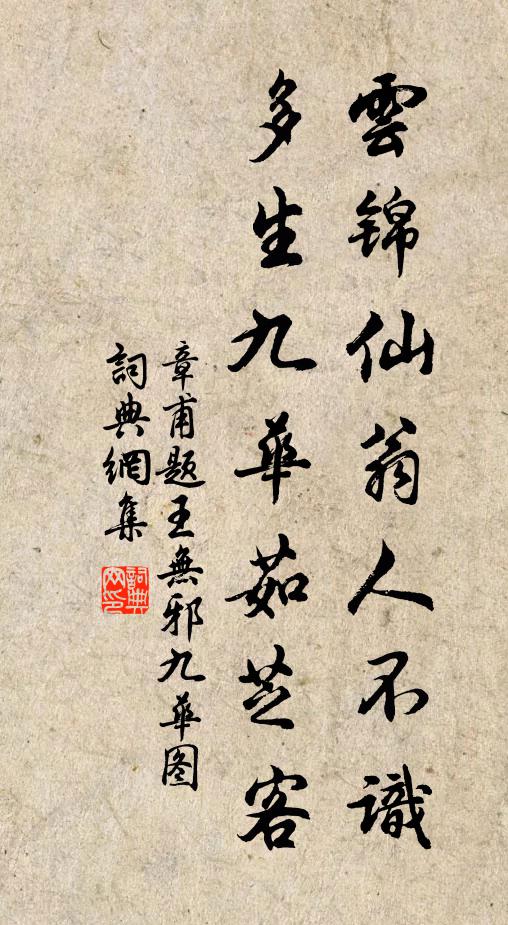 雲锦仙翁人不識
多生九華茹芝客
章甫题王無邪九華图
詞典網集
詞典
网印